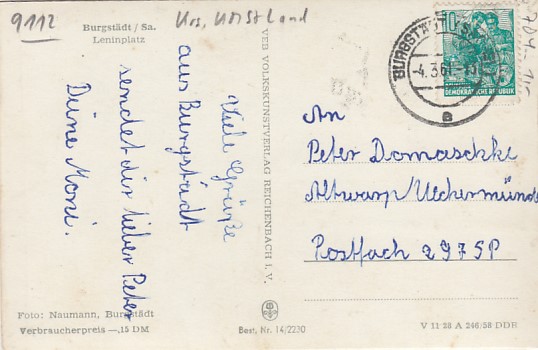 9112
Krs. Mittland
Burgstädt / Sa.
Leninplatz
Viele Grüße
aus Burgstädt
sendet dir lieber Peter
Deine Moni.
VEB VOLKSKUNSTVERLAG REICHENBACH I. V.
BURGSTÄDT
-4.3.61
a
10
DEMOKRATISCHE REPUBLIK
An
Peter Domaschke
Altwarp/Ueckermünde
Postfach 297SP
Foto: Naumann, Burgstädt
Verbraucherpreis —,15 DM
Best. Nr. 14/2230
V 11 28 A 246/58 DDR